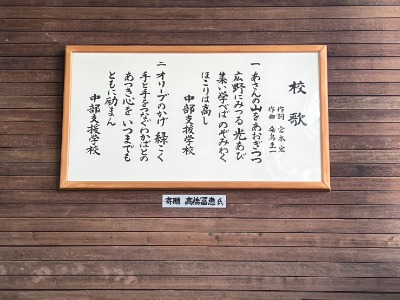 校歌
作詞 宮本 宏
作曲 桑島 圭一
一 あさんの山をあおぎつつ
広野にみつる光あび
集い学べばのぞみわく
ほこりは高し
中部支援学校
二 オリーブのかげ緑こく
手と手をつなぐわかばとの
あつき心をいつまでも
ともに励まん
中部支援学校
寄贈 高橋冨恵氏